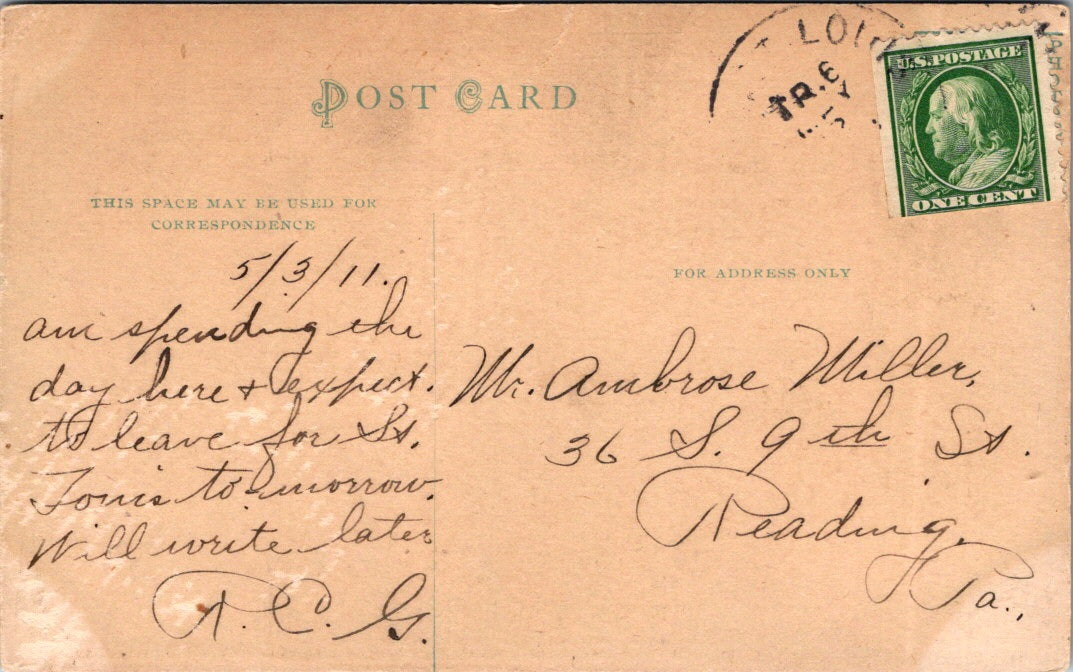 POST CARD
LOUI
TR. 6
U.S. POSTAGE
ONE CENT
THIS SPACE MAY BE USED FOR
CORRESPONDENCE
FOR ADDRESS ONLY
5/3/11.
am spending the
day here + expect.
to leave for St.
Louis to-morrow.
Will write later
R. C. G.
Mr. Ambrose Miller,
36 S. 9th St.
Reading,
Pa.,